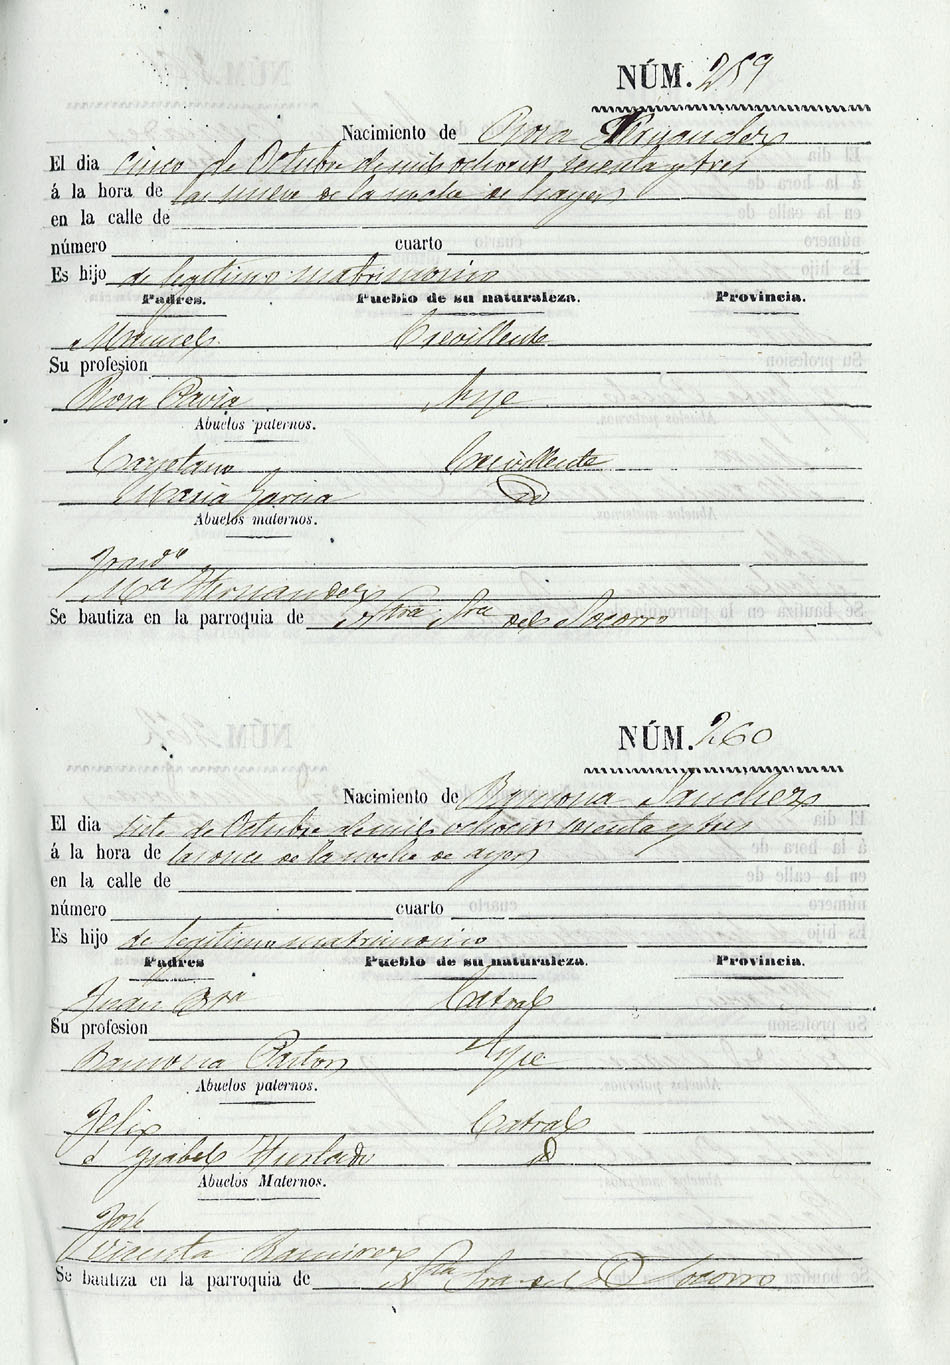 NÚM. 259
Nacimiento de Rosa Hernandez
El dia cinco de Octubre de mil ochocin sesenta y tres
á la hora de las nueve de la noche de hayer
en la calle de
número cuarto
Es hijo de legitimo matrimonio
Padres. Pueblo de su naturaleza. Provincia.
Manuel Crevillente
Su profesion
Rosa Pavia Aspe
Abuelos paternos.
Cayetano Crevillente
Maria Garcia
Abuelos maternos.
Mª Hernandez
Se bautiza en la parroquia de Ntra Sra del Socorro
NÚM. 260
Nacimiento de Ramona Sanchez
El dia siete de Octubre de mil ochocin sesenta y tres
á la hora de las once de la noche de ayer
en la calle de
número cuarto
Es hijo de legitimo matrimonio
Padres Pueblo de su naturaleza. Provincia.
Juan Catral
Su profesion
Ramona Pastor Aspe
Abuelos paternos.
Felix Catral
Ysabel Hurtado
Abuelos Maternos.
José
Vicenta Ramirez
Se bautiza en la parroquia de Ntra Sra del Socorro